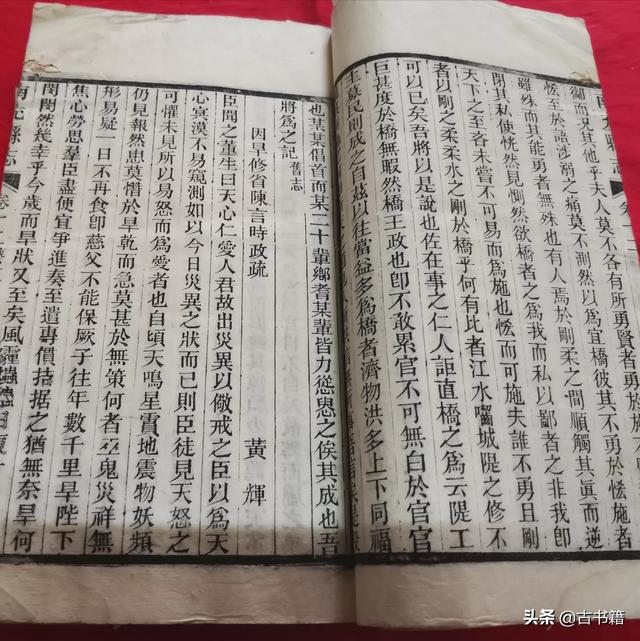 人莫不各有所勇賢者勇於施
恡至於語涉溺之痛莫不測然以爲宜橋彼其不勇於施
雖殊而其能勇者無殊也有人焉於剛柔之間順觸其真而逆
閉其私使恍然惻然欲橋者之爲我而私以鄙者之非我卽
天下之至吝未嘗不可易而爲施也恡而可施夫誰不勇且剛
者以剛之柔柔水之剛於橋乎何有比者江水囓城隄之修不
可以已矣吾將以是說也佐在事之仁人詎直橋之爲云隄工
巨甚度於橋無暇然橋王政也卽不敢累官不可無白於官官
主募民則成之自茲以往當益多爲橋者濟物洪多上下同福
也某某倡首而某二十輩鄉耆某輩皆力慫恿之俟其成也吾
將爲之記 舊志
因旱修省陳言時政疏 黃輝
臣聞之董生曰天心仁愛人君故出災異以儆戒之臣以爲天
心㝠漠不易窺測如以今日災異之狀而已則臣徒見天怒之
可懼未見所以易怒而爲愛者也自頃天鳴星實地震物妖頻
仍見報然患莫憯於旱乾而急莫甚於無策何者巫鬼災祥無
形易疑一日不再食卽慈父不能保厥子往年數千里旱陛下
焦心勞思羣臣盡便宜爭進奏至遣專償拮据之猶無奈旱何
閔閔然幾幸乎今歲而旱狀又至矣風霾蟲
南充縣志
頭条 @古書籍